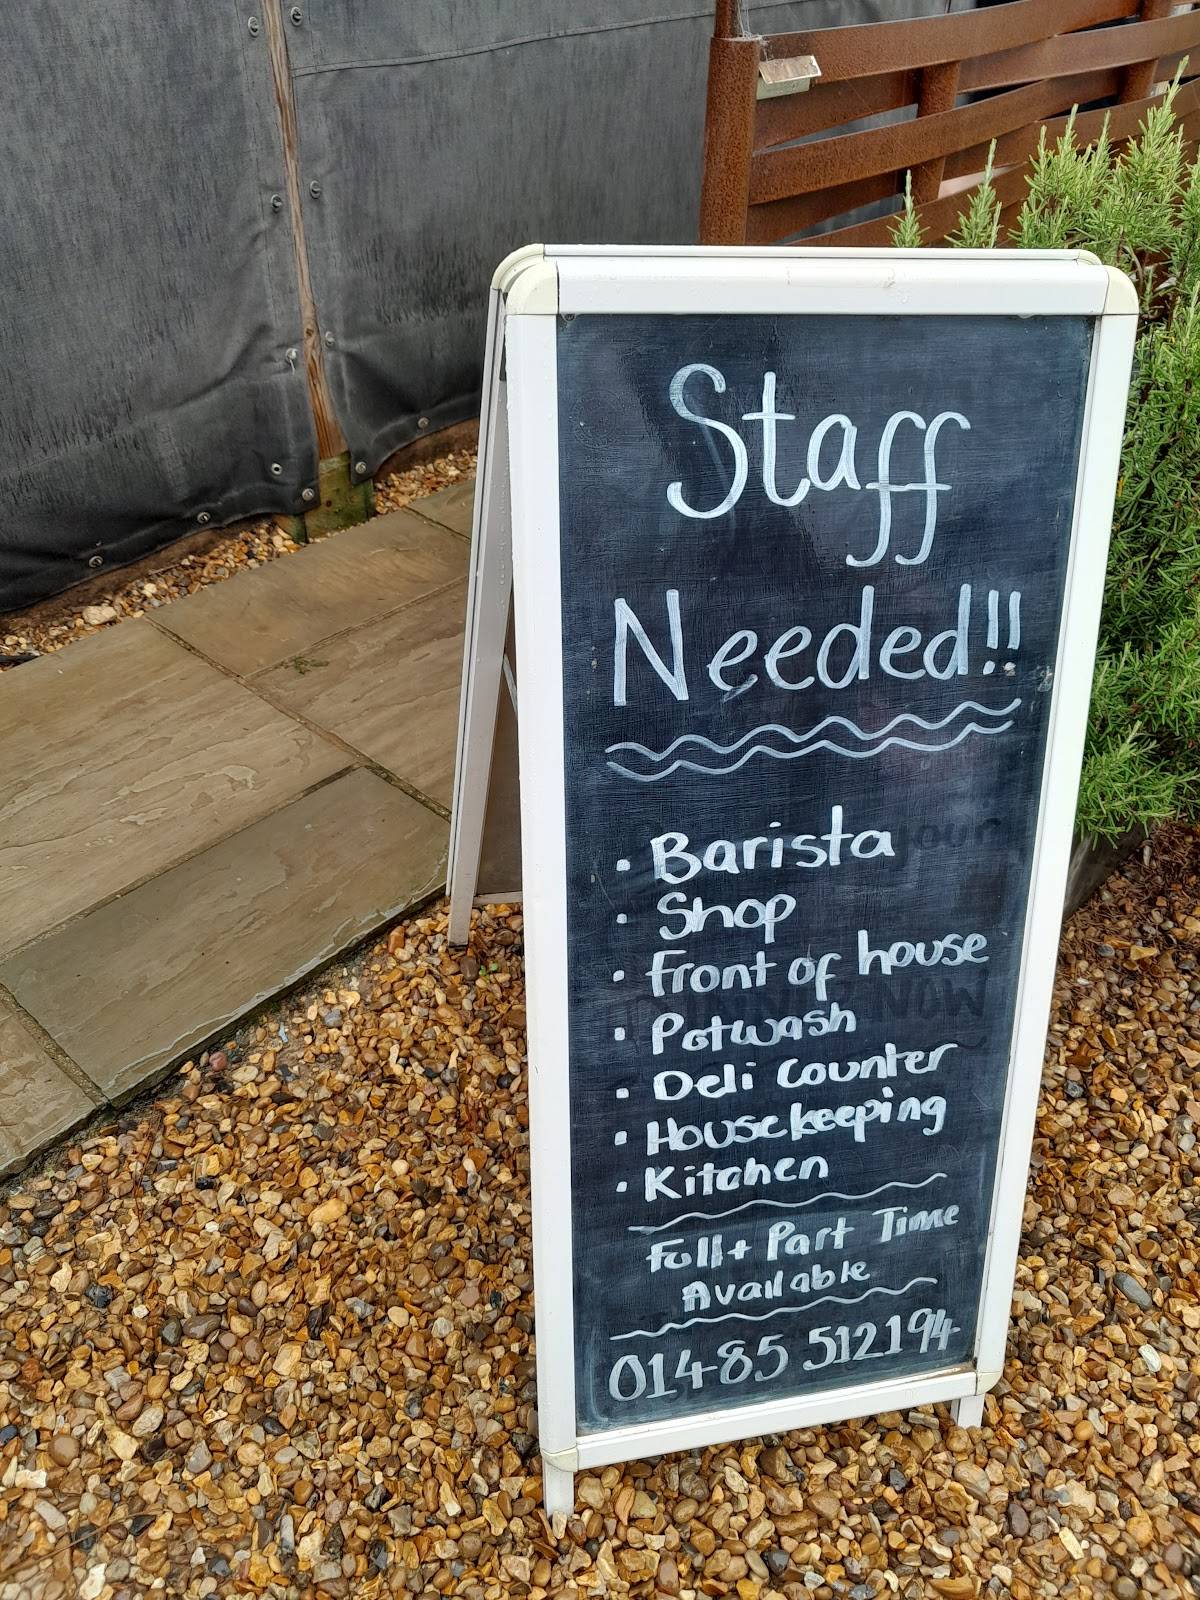 Staff
Needed!!
• Barista
• Shop
• Front of house
• Potwash
• Deli counter
• Housekeeping
• Kitchen
Full + Part Time
Available
01485 512194